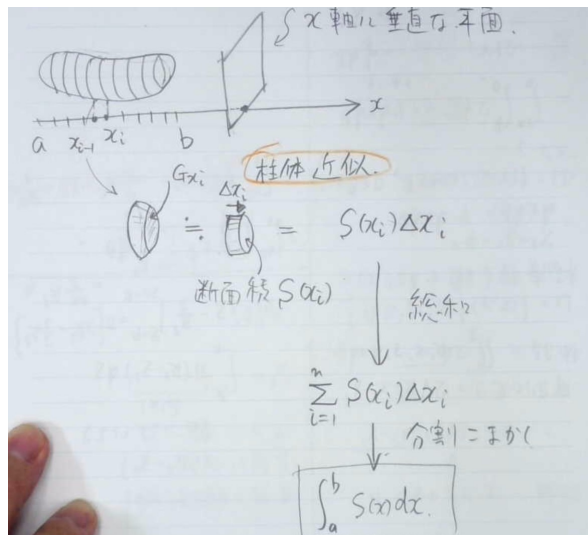 x軸に垂直な平面.
x
a
x_{i-1}
x_i
b
柱体近似.
G_{x_i}
Δx_i
≒
= S(x_i)Δx_i
断面積 S(x_i)
総和
\sum_{i=1}^{n} S(x_i)Δx_i
分割こまかく
\int_a^b S(x)dx.